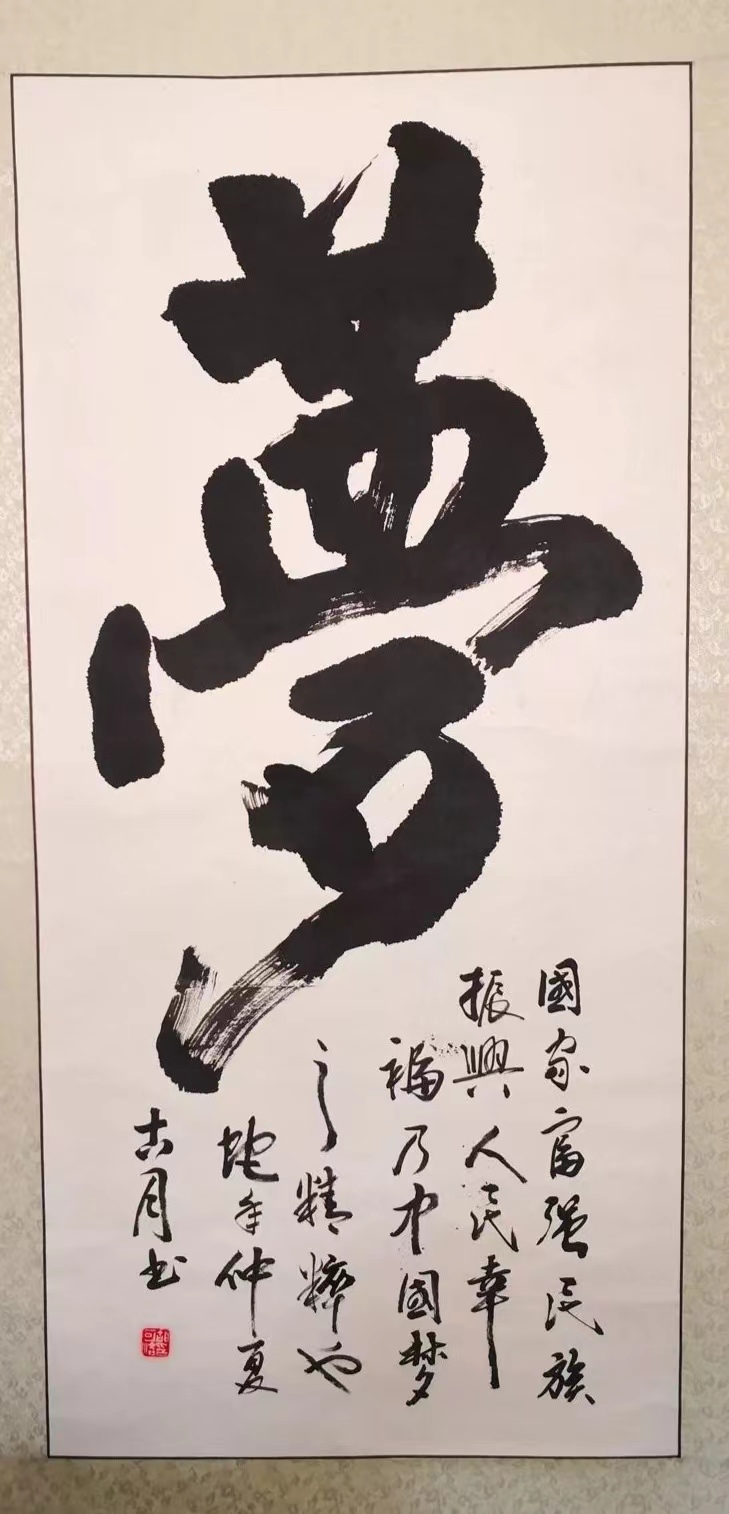 夢
國家富强民族
振興人民幸
福乃中國梦
之精粹也
蛇年仲夏
古月书